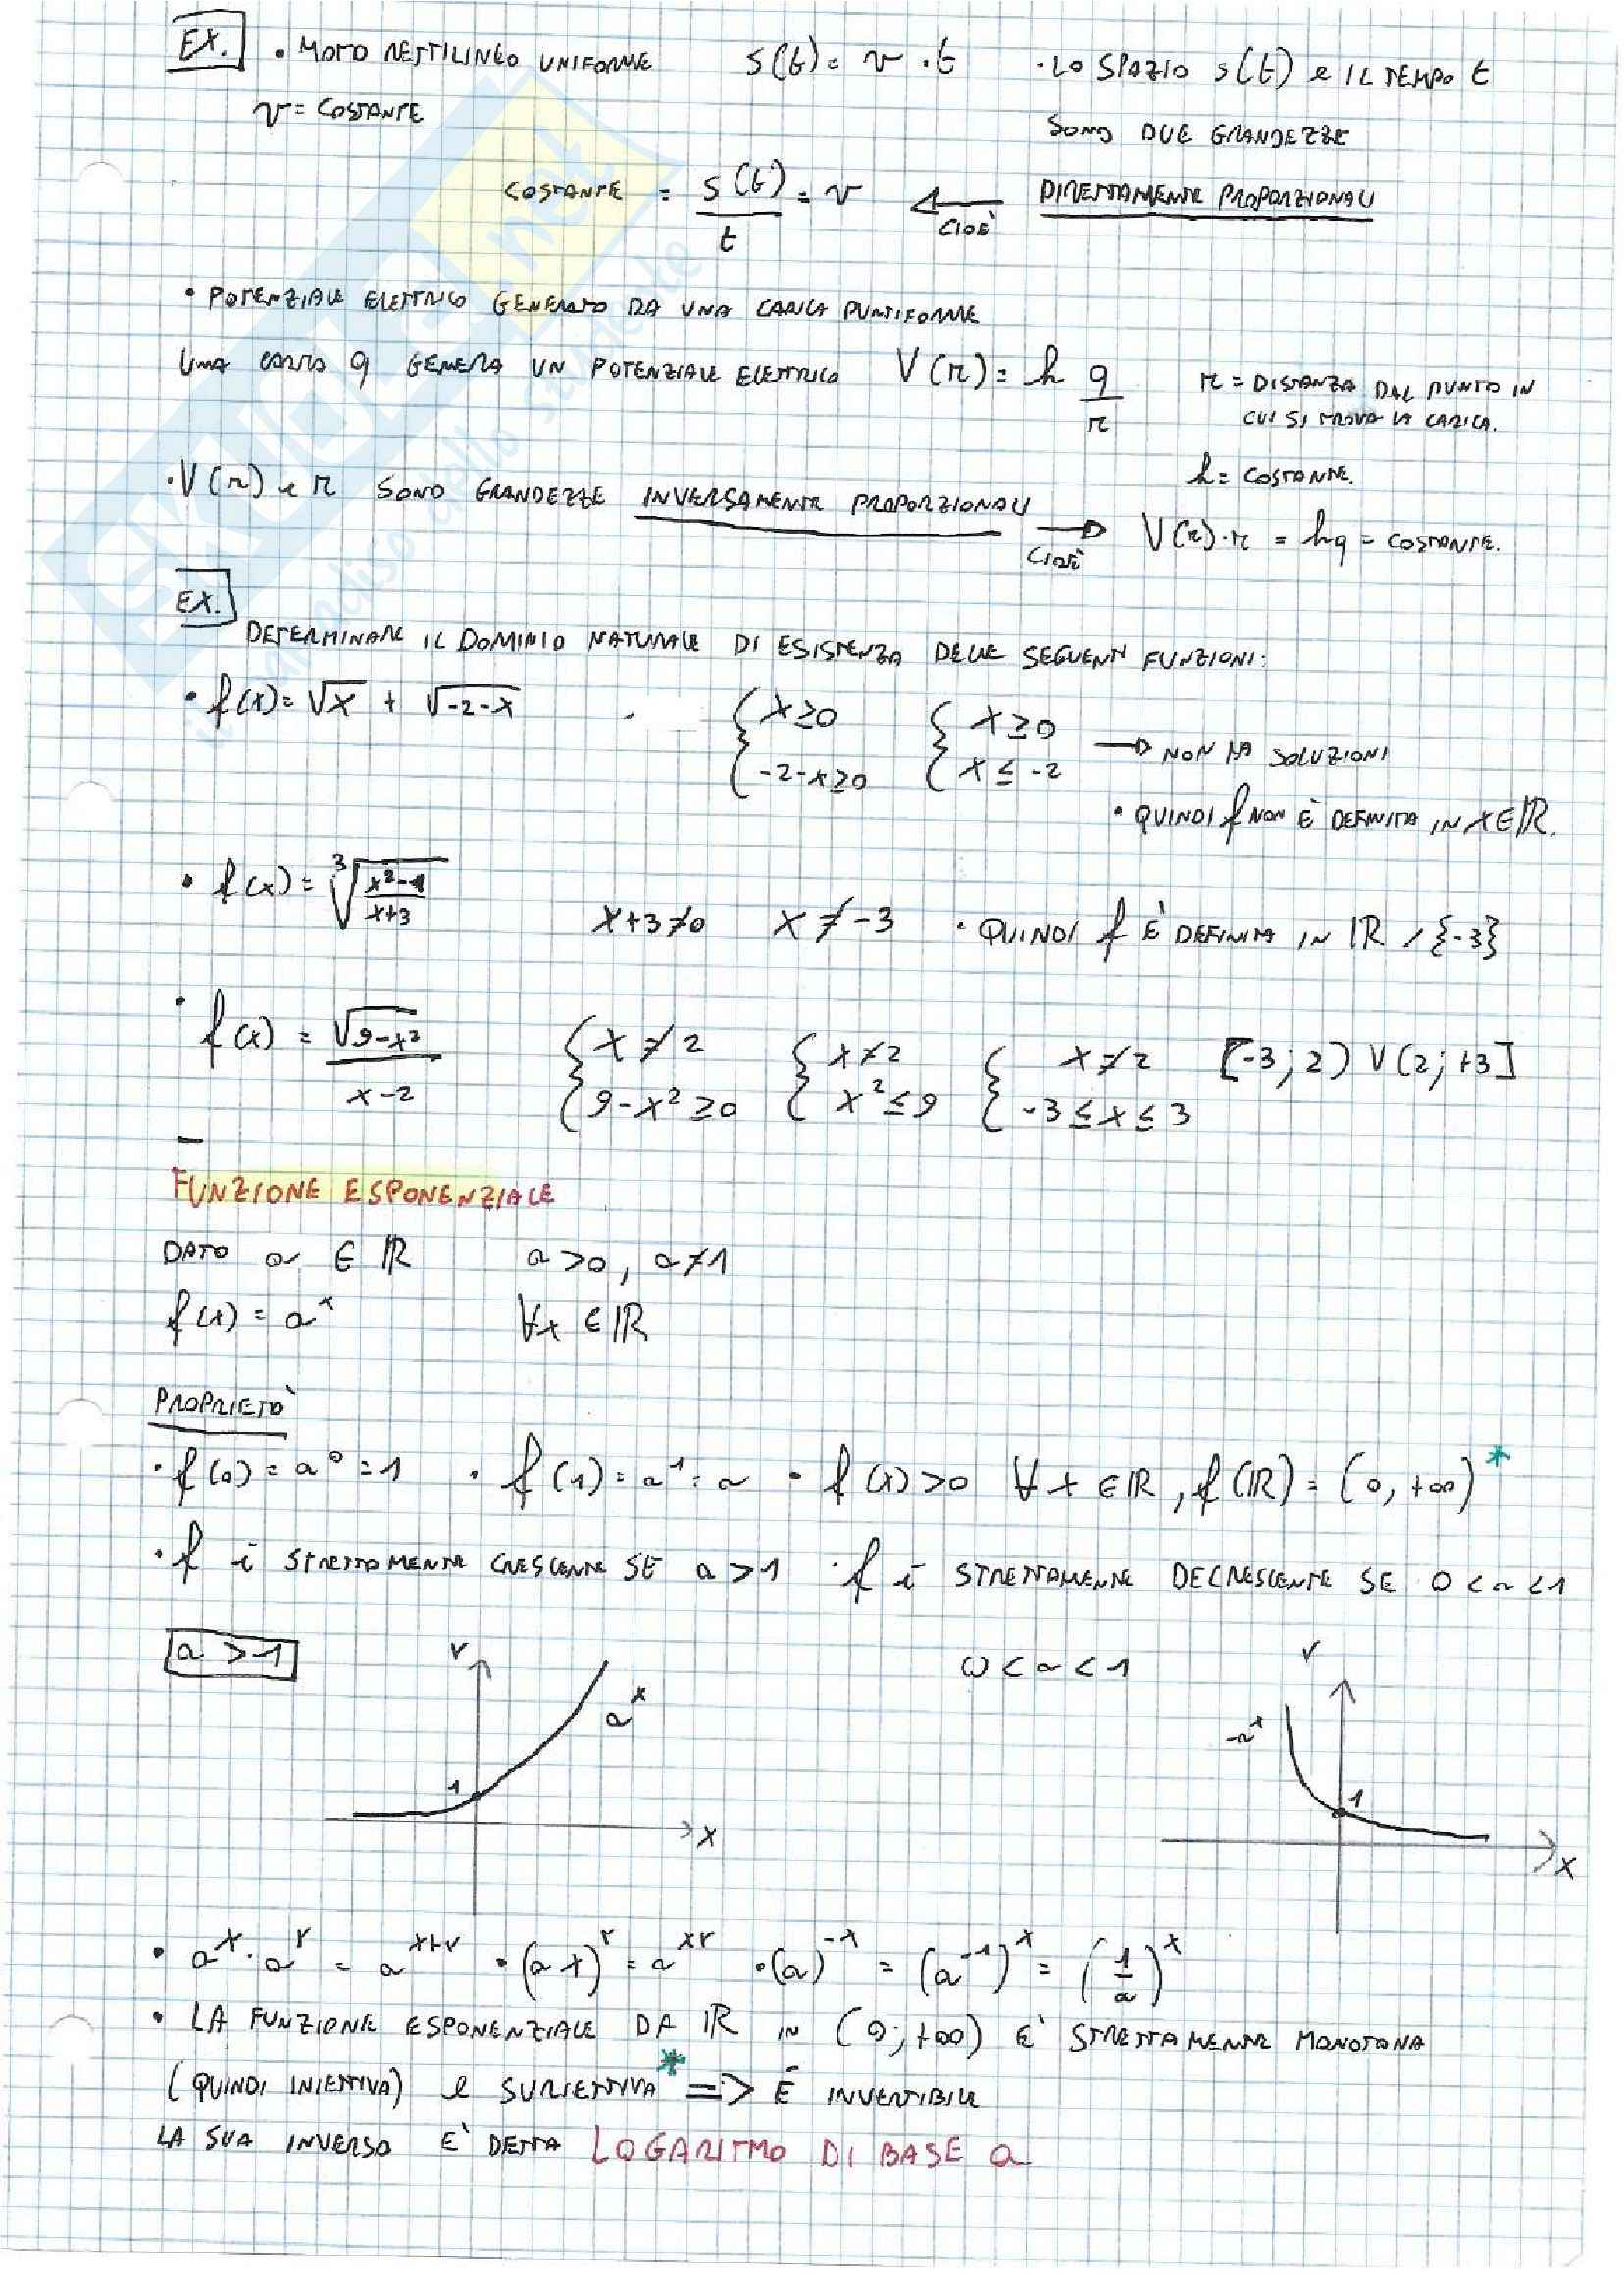 EX. • MOTO RETTILINEO UNIFORME s(t) = v · t • LO SPAZIO s(t) e IL TEMPO t
v = COSTANTE
SONO DUE GRANDEZZE
COSTANTE = s(t)/t = v ← CIOÈ DIRETTAMENTE PROPORZIONALI
• POTENZIALE ELETTRICO GENERATO DA UNA CARICA PUNTIFORME
UNA CARICA q GENERA UN POTENZIALE ELETTRICO V(r) = h q/r r = DISTANZA DAL PUNTO IN
CUI SI TROVA LA CARICA.
h = COSTANTE.
• V(r) e r SONO GRANDEZZE INVERSAMENTE PROPORZIONALI → CIOÈ V(r)·r = hq = COSTANTE.
EX.
DETERMINARE IL DOMINIO NATURALE DI ESISTENZA DELLE SEGUENTI FUNZIONI:
• f(x) = √x + √-2-x { x ≥ 0 { x ≥ 0
{ -2-x ≥ 0 { x ≤ -2 → NON HA SOLUZIONI
• QUINDI f NON È DEFINITA IN x∈ℝ.
• f(x) = ∛((x²-1)/(x+3)) x+3≠0 x ≠ -3 • QUINDI f È DEFINITA IN ℝ / {-3}
• f(x) = √9-x² / x-2 { x ≠ 2 { x ≠ 2 { x ≠ 2 [-3; 2) V (2; +3]
{ 9-x² ≥ 0 { x² ≤ 9 { -3 ≤ x ≤ 3
FUNZIONE ESPONENZIALE
DATO a ∈ ℝ a > 0, a ≠ 1
f(x) = aˣ ∀x ∈ ℝ
PROPRIETÀ
• f(0) = a⁰ = 1 • f(1) = a¹ = a • f(x) > 0 ∀ x ∈ ℝ, f(ℝ) = (0, +∞) *
• f è STRETTAMENTE CRESCENTE SE a > 1 • f è STRETTAMENTE DECRESCENTE SE 0 < a < 1
a > 1 Y 0 < a < 1 Y
aˣ
-aˣ
1 1
X X
• aˣ · aʸ = aˣ⁺ʸ • (ax)ʸ = aˣʸ • (a)⁻ˣ = (a⁻¹)ˣ = (1/a)ˣ
• LA FUNZIONE ESPONENZIALE DA ℝ IN (0; +∞) E' STRETTAMENTE MONOTONA
(QUINDI INIETTIVA) e SURIETTIVA* => È INVERTIBILE
LA SUA INVERSO E' DETTA LOGARITMO DI BASE a